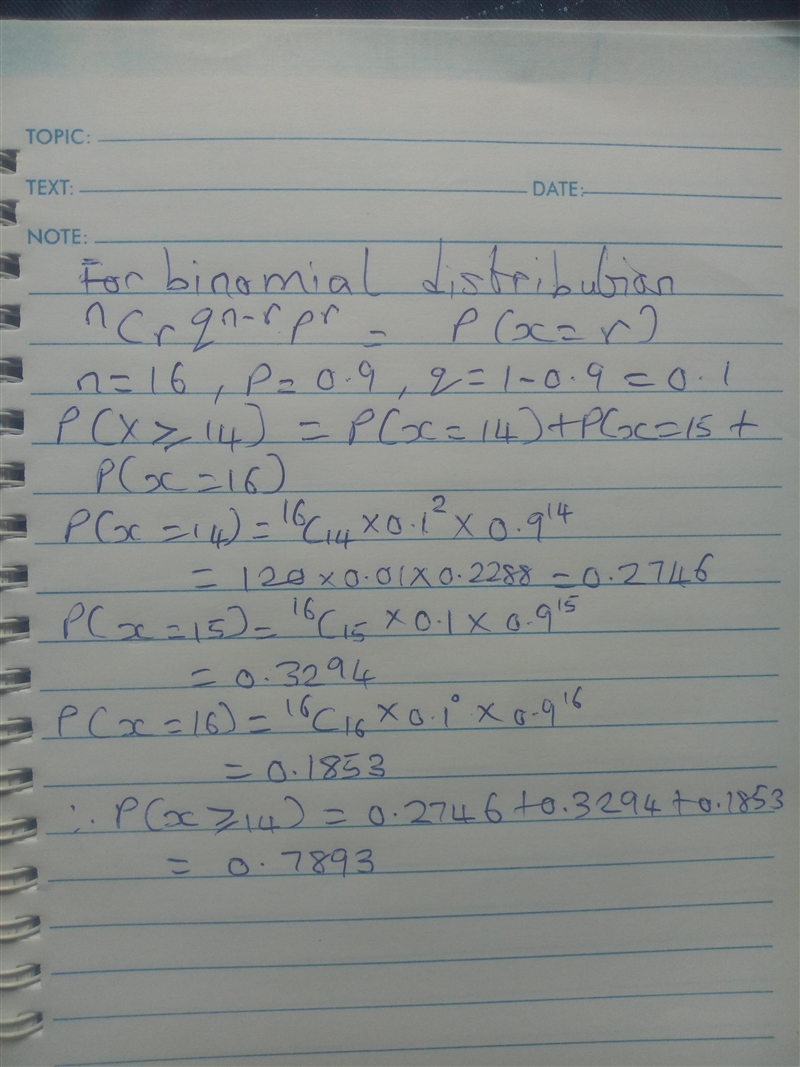 TOPIC:
TEXT: DATE:
NOTE:
For binomial distribution
ⁿCᵣ qⁿ⁻ʳ pʳ = P(x=r)
n=16, P=0.9, q=1-0.9=0.1
P(X≥14) = P(x=14)+P(x=15+
P(x=16)
P(x=14)=¹⁶C₁₄×0.1²×0.9¹⁴
= 120×0.01×0.2288=0.2746
P(x=15)=¹⁶C₁₅×0.1×0.9¹⁵
= 0.3294
P(x=16)=¹⁶C₁₆×0.1⁰×0.9¹⁶
= 0.1853
∴ P(x≥14) = 0.2746+0.3294+0.1853
= 0.7893